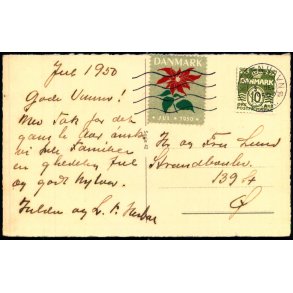 Jul 1950
Gode Venner!
Mens Tak for det
gamle Aar ønsker
vi hele Familien
en glædelig Jul
og godt Nytaar.
Hulda og L. P.
DANMARK
JUL 1950
KØBENHAVN
DANMARK
10
Hr og Fru Lund
Strandboulev.
139 4
Ø